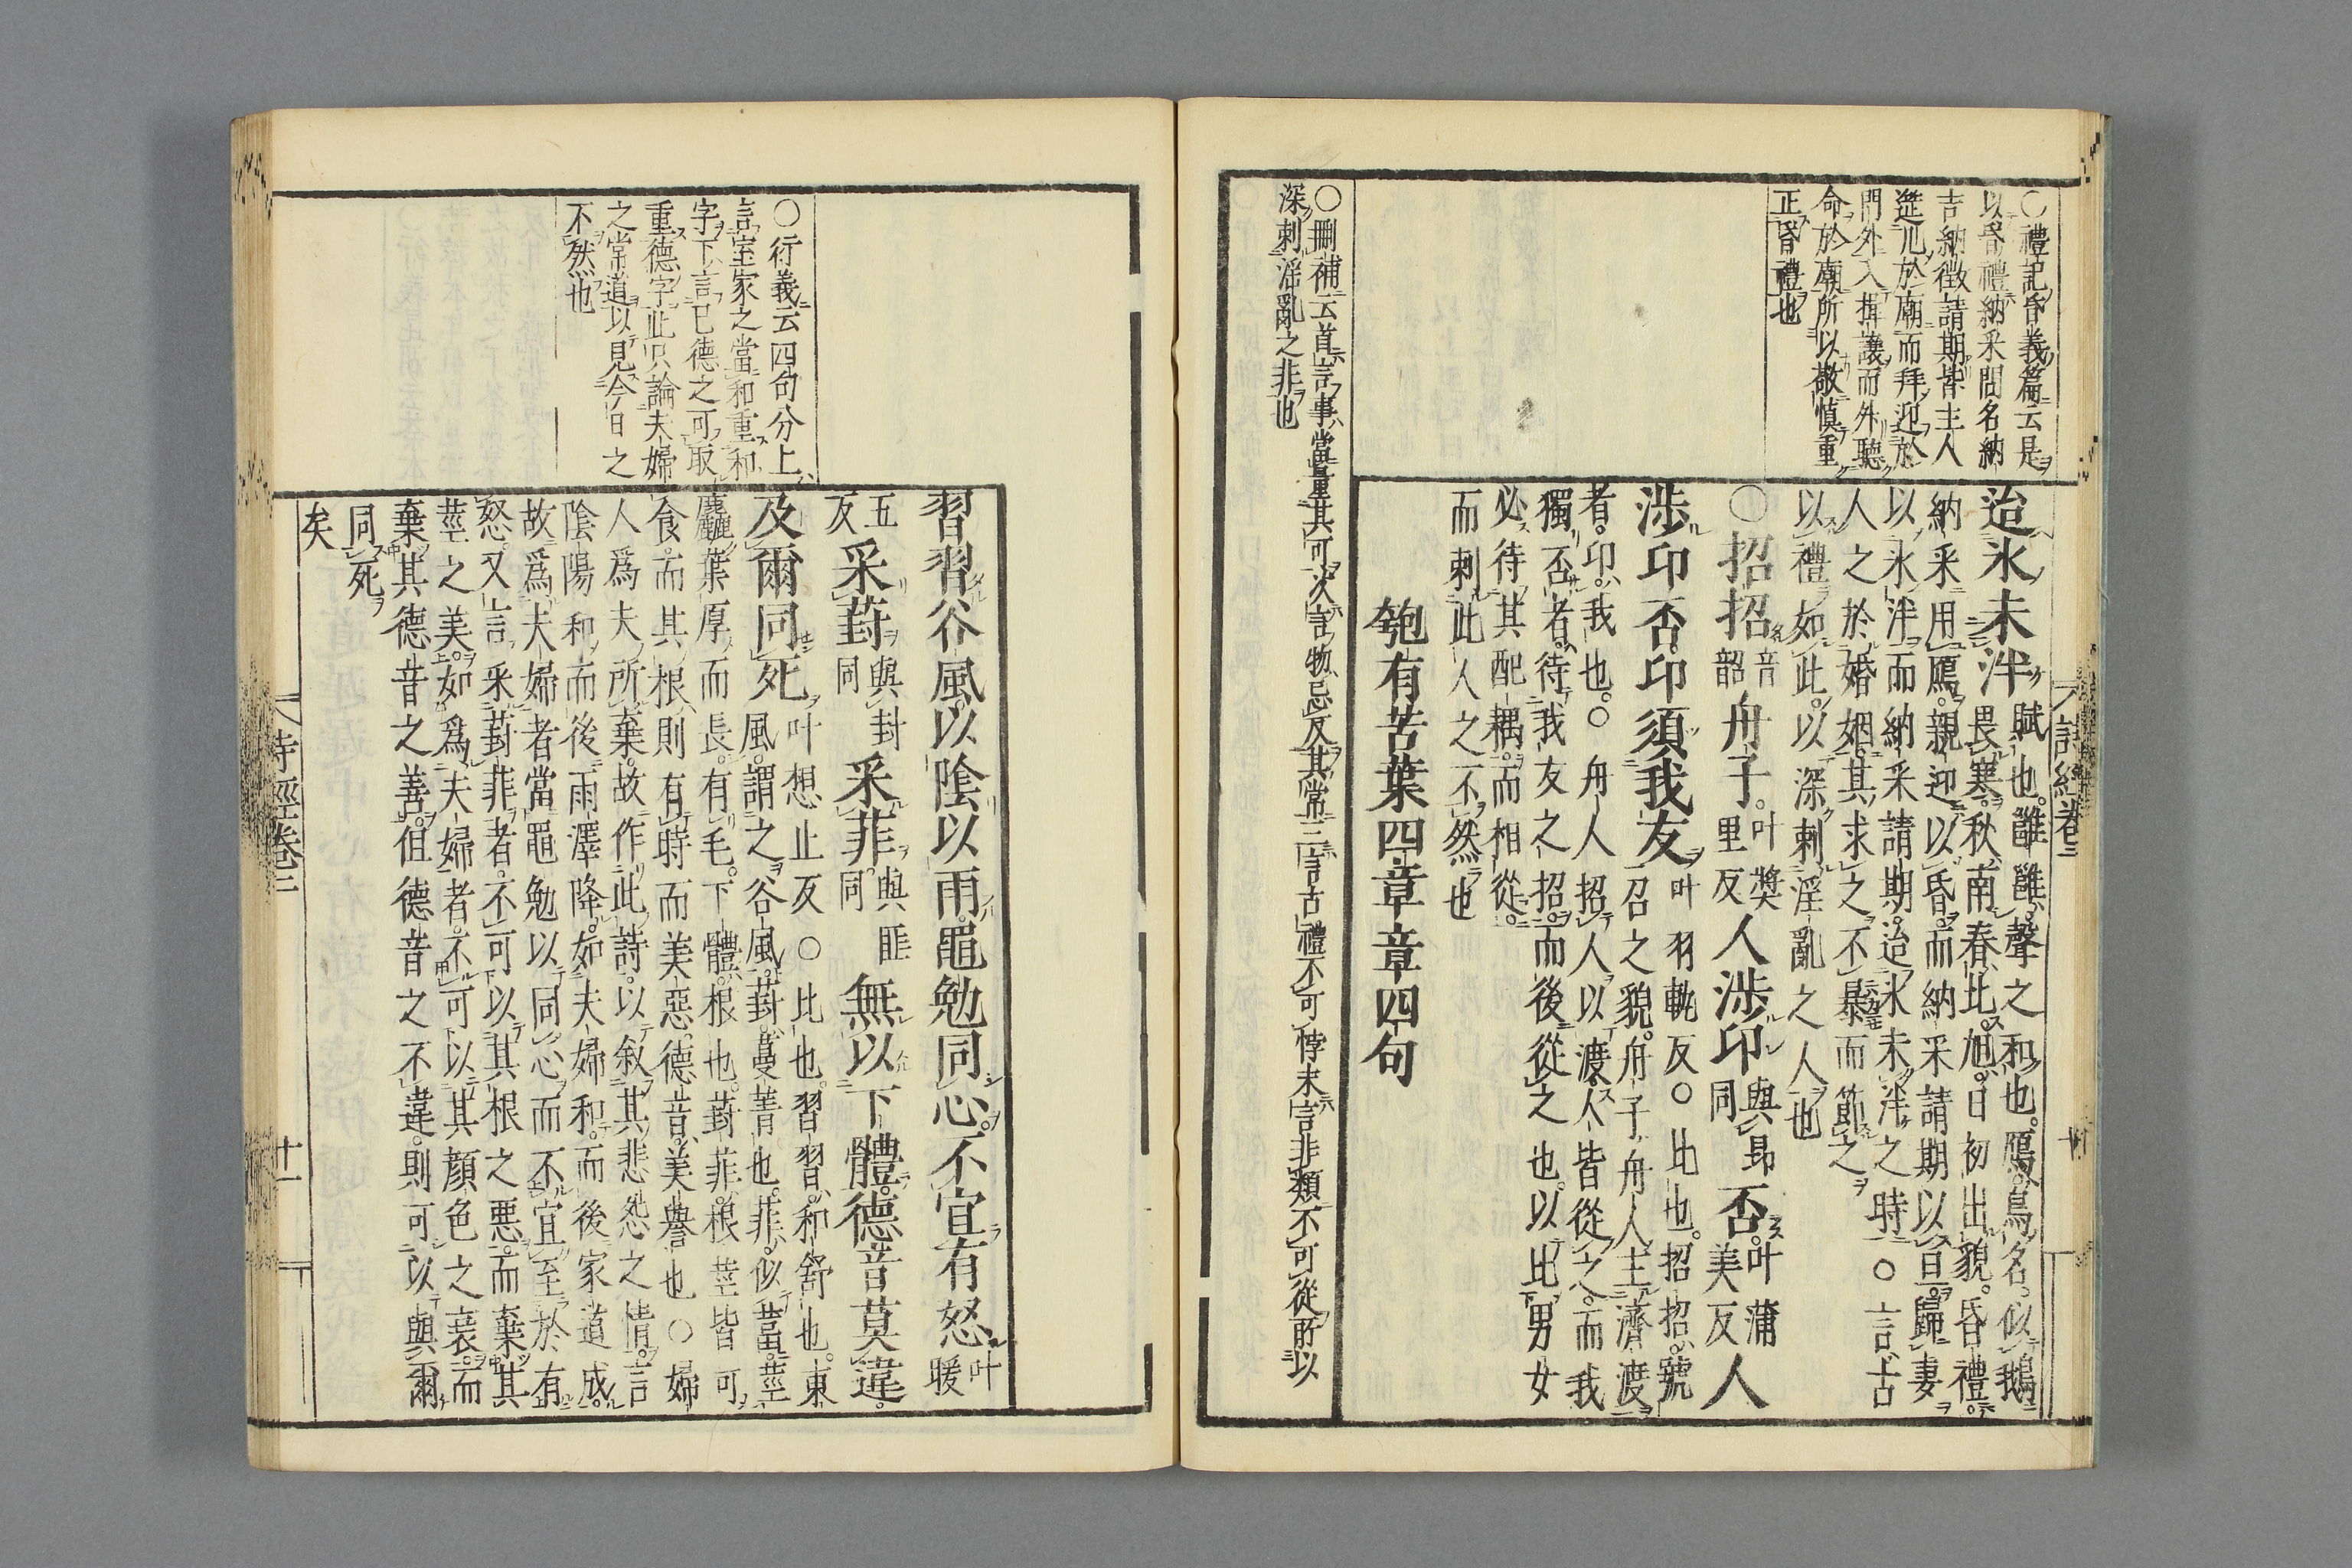 ○禮記昏義篇云是
以昏禮納采問名納
吉納徵請期皆主人
筵几於廟而拜迎於
門外入揖讓而外聽
命於廟所以敬慎重
正昏禮也
詩經卷二
迨氷未泮賦也雝雝聲之和也鴈鳥名似鵝
畏寒秋南春北旭日初出貌昏禮
納采用鴈親迎以昏而納采請期以旦歸妻
以氷泮而納采請期迨氷未泮之時○言古
人之於婚姻其求之不暴而節之
以禮如此以深刺淫亂之人也
○招招音韶舟子叶奬里反人涉卬與昻同否叶蒲美反人
涉卬否卬須我友叶羽軌反○比也招招號
召之貌舟子舟人主濟渡
者卬我也○舟人招人以渡人皆從之而我
獨否者待我友之招而後從之也以比男女
必待其配耦而相從
而刺此人之不然也
匏有苦葉四章章四句
○刪補云首言事當量其可次言物忌反其常三言古禮不可悖末言非類不可從所以
深刺淫亂之非也
○衍義云四句分上
言室家之當和重和
字下言己德之可取
重德字此只論夫婦
之常道以見今日之
不然也
習習谷風以陰以雨黽勉同心不宜有怒叶暖
五反采葑與封同采菲與匪同無以下體德音莫違
及爾同死叶想止反○比也習習和舒也東
風謂之谷風葑蔓菁也菲似葍莖
麤葉厚而長有毛下體根也葑菲根莖皆可
食而其根則有時而美惡德音美譽也○婦
人爲夫所棄故作此詩以叙其悲怨之情言
陰陽和而後雨澤降如夫婦和而後家道成
故爲夫婦者當黽勉以同心而不宜至於有
怒又言采葑菲者不可以其根之惡而棄其
莖之美如爲夫婦者不可以其顔色之衰而
棄其德音之善但德音之不違則可以與爾
同死
矣
詩經卷二
十一